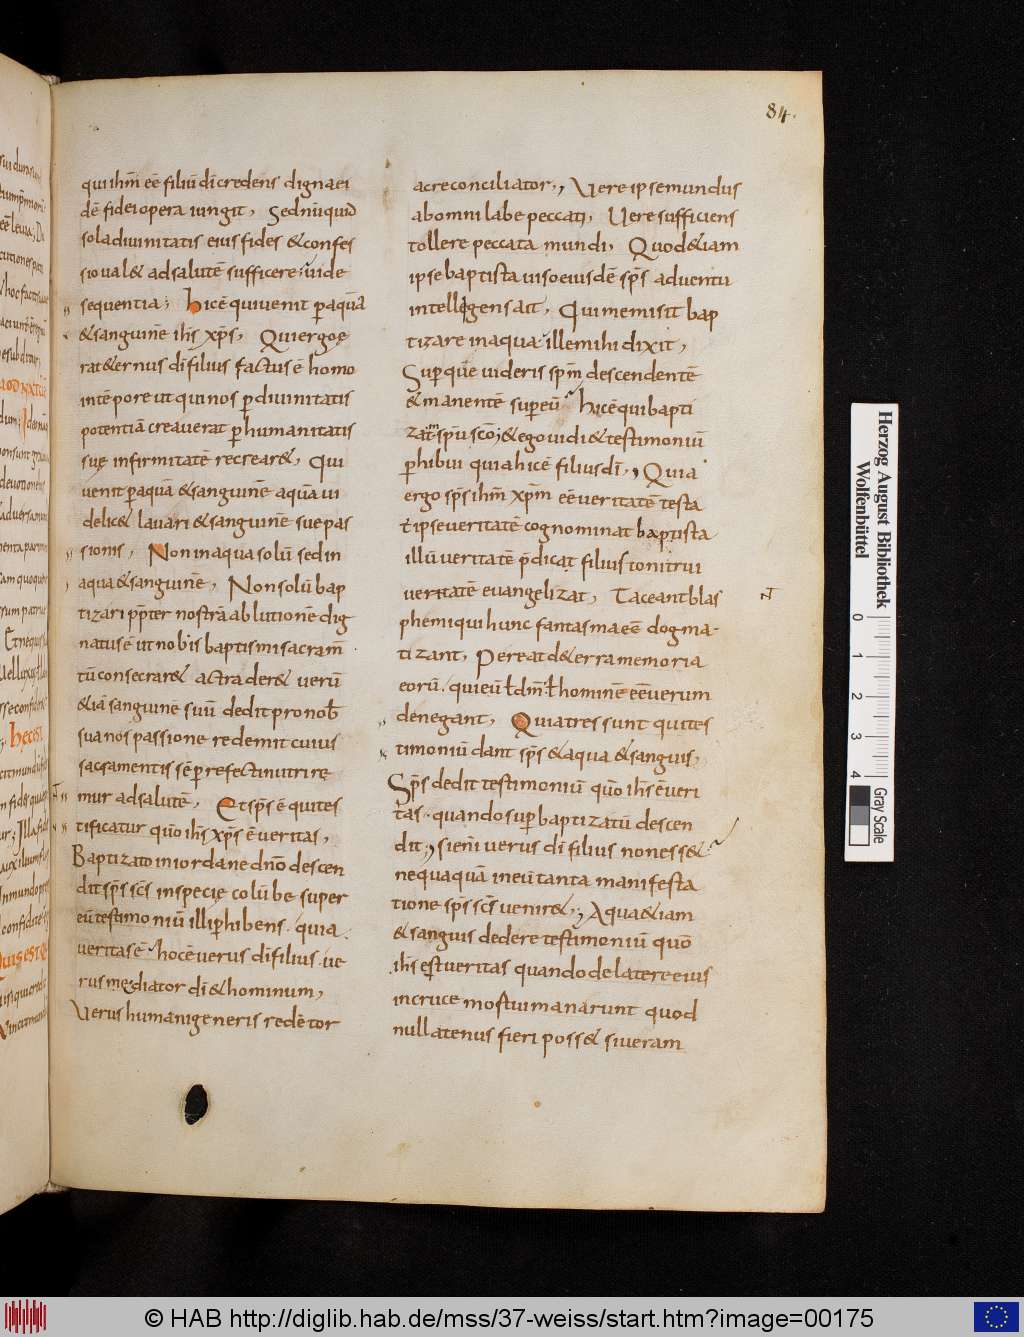 84.
qui ihm̄ eē filiū dī credens digna ei
dē fidei opera iungit, Sed nūquid
sola diuinitatis eius fides & confes
sio ual& ad salutē sufficere; uide
sequentia; hic ē qui uenit ꝑ aquā
& sanguinē ihs̄ xp̄s, Qui ergo ę
rat &ernus dī filius factus ē homo
in tēpore ut qui nos ꝑ diuinitatis
potentiā creauerat ꝑ humanitatis
suę infirmitatē recrear&, Qui
uenit ꝑ aquā & sanguinē aquā ui
delic& lauari & sanguinē sue pas
sionis, Non in aqua solū sed in
aqua & sanguinē, Non solū bap
tizari ꝓpter nostrā ablutionē dig
natus ē ut nobis baptismi sacram̄
tū consecrar& ac trader& uerū
& iā sanguinē suū dedit pro nob̄
sua nos passione redemit cuius
sacramentis sēꝑ refecti nutrirę
mur ad salutē, Et sp̄s ē qui tes
tificatur qūo ihs̄ xp̄s ē ueritas,
Baptizato in iordane dnō descen
dit sp̄s sc̄s in specię colūbę super
eū testimoniū illi ꝑhibens. quia
ueritas ē hoc ē uerus dī filius. ue
rus mędiator dī & hominum,
Verus humani generis redētor
ac reconciliator, Vere ipse mundus
ab omni labe peccati, Vere sufficiens
tollere peccata mundi, Quod &iam
ipse baptista uiso eiusdē sp̄s aduentu
intelligens ait, Qui me misit bap
tizare in aqua ille mihi dixit,
Suꝑ quē uideris sp̄m descendentē
& manentē suꝑ eū hic ē qui bapti
zat in sp̄u scō; & ego uidi & testimoniū
ꝑhibui quia hic ē filius dī, Quia
ergo sp̄s ihm̄ xp̄m eē ueritatē testa
t̄ ipse ueritatē cognominat baptista
illū ueritatē p̄dicat filius tonitrui
ueritatē euangelizat, Taceant blas
phemi qui hunc fantasma eē dogma-
tizant, Pereat de terra memoria
eorū. qui eū ł dm̄ ł hominē eē uerum
denegant, Quia tres sunt qui tes
timoniū dant sp̄s & aqua & sanguis,
Sp̄s dedit testimoniū qūo ihs̄ ē ueri
tas. quando suꝑ baptizatū descen
dit; si eni uerus dī filius non ess&
nequaquā in eū tanta manifesta
tione sp̄s sc̄s uenir&; Aqua &iam
& sanguis dedere testimoniū quō
ihs̄ est ueritas quando de latere eius
in cruce mortui manarunt quod
nullatenus fieri poss& si ueram
Herzog August Bibliothek
Wolfenbüttel
0 1 2 3 4
Gray Scale
© HAB http://diglib.hab.de/mss/37-weiss/start.htm?image=00175